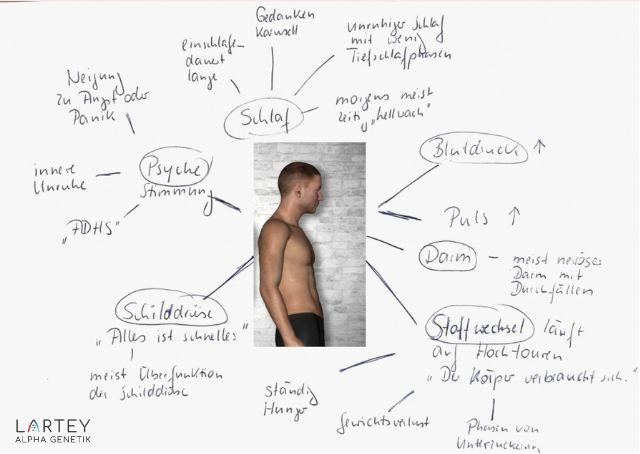 Gedanken
Karusell
einschlafe-
dauert
lange
unruhiger Schlaf
mit wenig
Tiefschlafphasen
Schlaf
morgens meist
zeitig „hellwach“
Neigung
zu Angst oder
Panik
innere
Unruhe
Psyche
Stimmung
„ADHS“
Blutdruck ↑
Puls ↑
Darm
meist nervöser
Darm mit
Durchfällen
Schilddrüse
„Alles ist schneller“
meist Überfunktion
der Schilddrüse
Stoffwechsel läuft
auf Hochtouren
„Der Körper verbraucht sich.“
ständig
Hunger
Gewichtsverlust
Phasen von
Unterzuckerung
LARTEY
ALPHA GENETIK